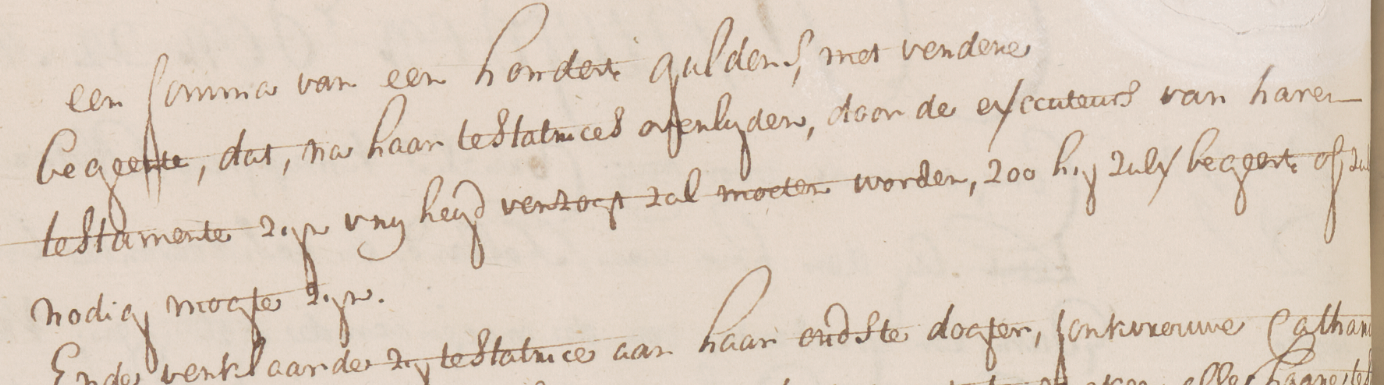 een somma van een hondert guldens, met verdere
begeerte, dat, na haar testatrices overlyden, door de executeurs van haren
testamente zijn vryheyd verzogt zal moeten worden, zoo hij zulx begeert of
nodig mogte zijn.
Ende verklaarde zij testatrice aan haar oudste dogter, jonkvrouwe
alle haare